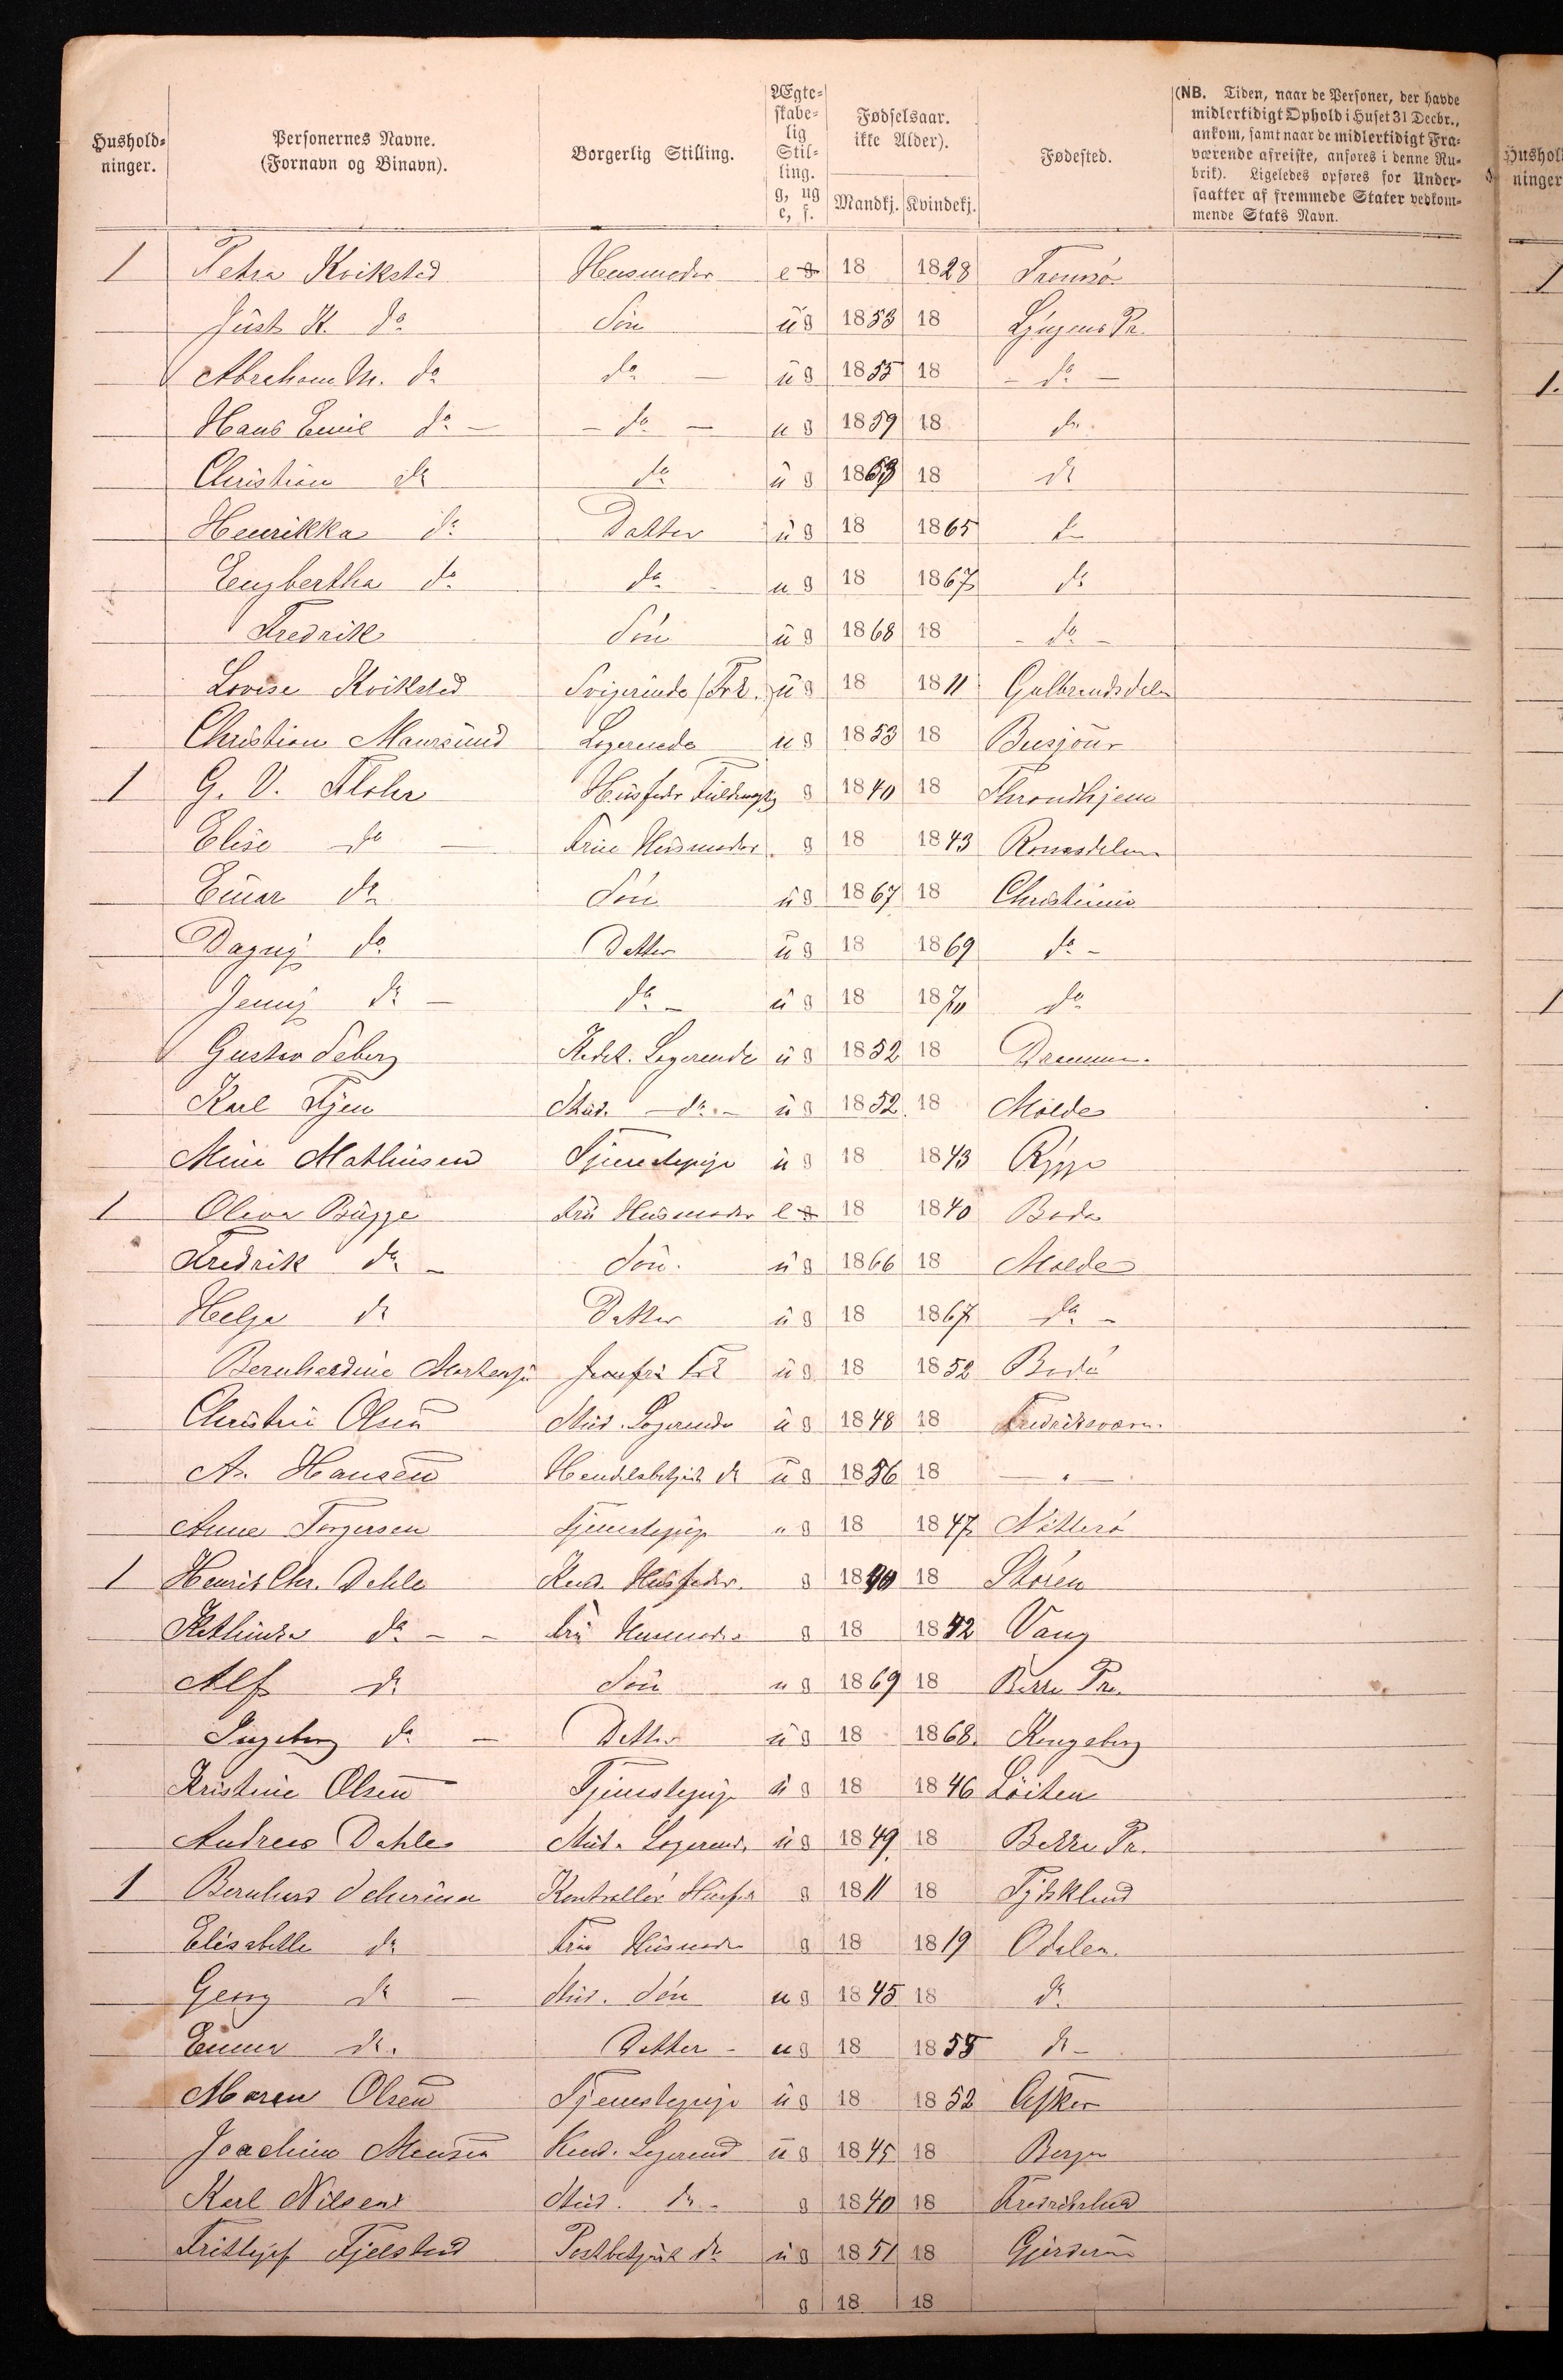 Hushold-
ninger.
Personernes Navne.
(Fornavn og Binavn).
Borgerlig Stilling.
Ægte-
skabe-
lig
Stil-
ling.
g, ug
e, f.
Fødselsaar.
ikke Alder).
Mandkj. Kvindekj.
Fødested.
(NB. Tiden, naar de Personer, der havde
midlertidigt Ophold i Huset 31 Decbr.,
ankom, samt naar de midlertidigt Fra-
værende afreiste, anføres i denne Ru-
brik). Ligeledes opføres for Under-
saatter af fremmede Stater vedkom-
mende Stats Navn.
1 Petra Kvikstad Husmoder e g 18 1828 Tromsö
Just K. do Sön ug 1853 18 Lyngens Pr.
Abraham M. do do ug 1855 18 do
Hans Emil do do ug 1859 18 do
Christian do do ug 1863 18 do
Henrikka do Datter ug 18 1865 do
Engbertha do do ug 18 1867 do
Fredrik Sön ug 1868 18 do
Lovise Kvikstad ug 18 1811 Gulbrandsdalen
Christian Maursund Logerende ug 1853 18
1 G. V. Flohr Husfader Fuldmægtig g 1840 18 Throndhjem
Elise do Frue Husmoder g 18 1843 Romsdalen
Einar do Sön ug 1867 18 Christiania
Dagny do Datter ug 18 1869 do
Jenny do do ug 18 1870 do
Gustav Seberg Kadet. Logerende ug 1852 18 Drammen
Karl Stud. do ug 1852 18 Molde
Mina Mathiesen Tjenestepige ug 18 1843 Rygge
1 Oliva Bugge Fru Husmoder e g 18 1840 Bodö
Fredrik do Sön ug 1866 18 Molde
Helga do Datter ug 18 1867 do
Bernhardine Jomfru ug 18 1852 Bodö
Christian Olsen Stud. Logerende ug 1848 18 Fredriksværn
A. Hansen Handelsbetjent do ug 1856 18 "
Anne Torgersen Tjenestepige ug 18 1847 Nötterö
1 Henrik Chr. Dahle Kand. Husfader g 1840 18 Stören
Kathinka do Fru Husmoder g 18 1842 Vang
Alf do Sön ug 1869 18 Pr.
Ingeborg do Datter ug 18 1868 Kongsberg
Kristine Olsen Tjenestepige ug 18 1846 Löiten
Andreas Dahle Stud. Logerend. ug 1849 18 Pr.
1 Bernhard Kontrollör Husfa g 1811 18 Tydskland
Elisabeth do Fru Husmoder g 18 1819 Odalen
Georg do Stud. Sön ug 1845 18 do
Emma do Datter ug 18 1855 do
Maren Olsen Tjenestepige ug 18 1852 Asker
Joachim Monsen Kand. Logerend ug 1845 18 Bergen
Karl Nilsen Stud. do g 1840 18 Fredrikshald
Frithjof Fjelstad Postbetjent do ug 1851 18 Gjerderum
g 18 18